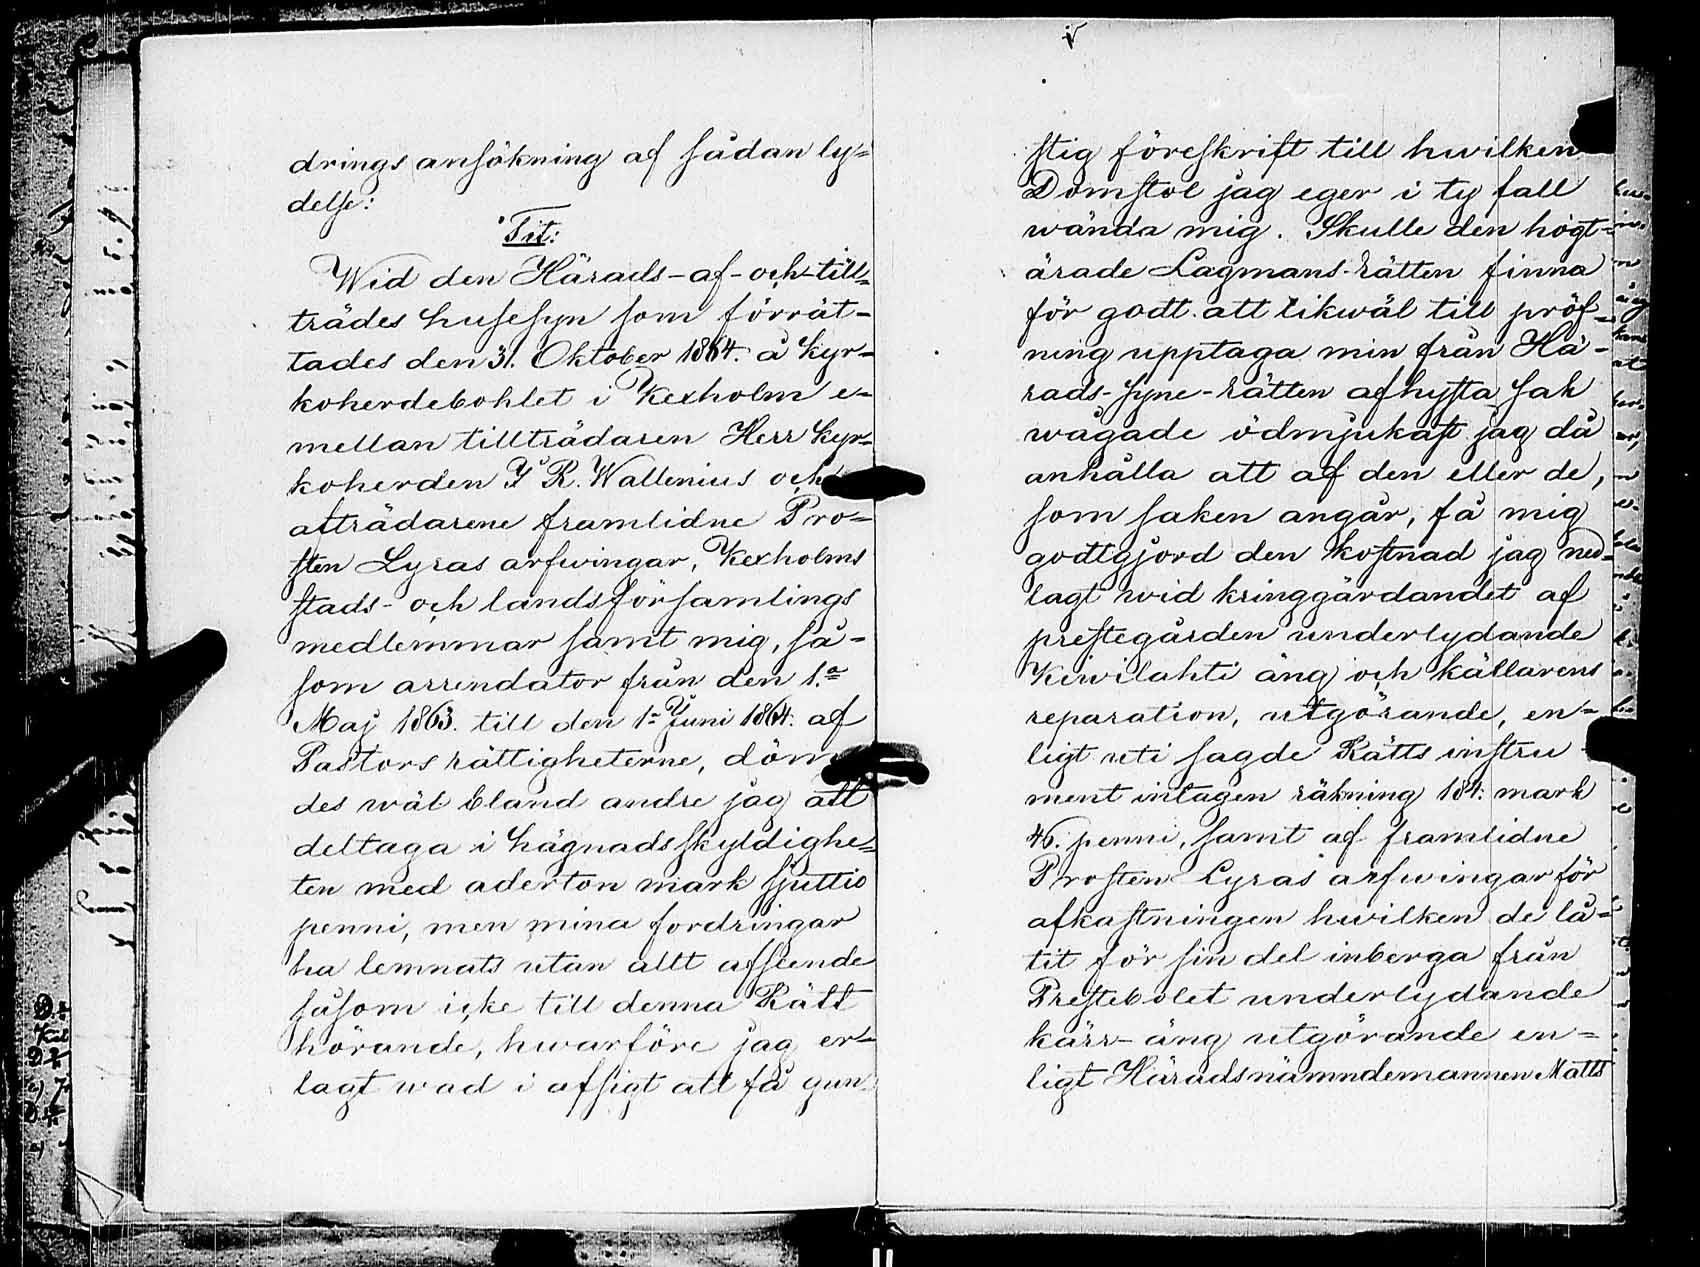 drings ansökning af sådan ly=
delse:
"Tit:
Wid den Härads-af-och till=
trädes husesyn som förrät-
tades den 31. Oktober 1864. å kyr-
koherdebohlet i Kexholm e-
mellan tillträdaren Herr kyr-
koherden J R. Wallenius och
afträdarene framlidne Pro-
sten Lyras arfwingar, Kexholms
stads- och landsförsamlings
medlemmar samt mig, så-
som arrendator från den 1.a
Maj 1863. till den 1= Juni 1864. af
Pastors rättigheterne, döm
des wäl bland andre jag att
deltaga i hägnadsskyldighe=
ten med aderton mark sjuttio
penni, men mina fordringar
ha lemnats utan allt afseende
såsom icke till denna Rätt
hörande, hwarföre jag er-
lagt wad i afsigt att få gun
stig föreskrift till hwilken
Domstol jag eger i ty fall
wända mig. Skulle den högt-
ärade Lagmans-rätten finna
för godt att likwäl till pröf-
ning upptaga min från Hä-
rads-syne-rätten afhysta sak
wågade ödmjukast jag då
anhålla att af den eller de,
som saken angår, få mig
godtgjord den kostnad jag ned-
lagt wid kringgärdandet af
prestegården underlydande
Kiwilahti äng och källarens
reparation, utgörande, en-
ligt uti sagde Rätts instru-
ment intagen räkning 184: mark
46. penni, samt af framlidne
Prosten Lyras arfwingar för
afkastningen hwilken de lå-
tit för sin del inberga från
Prestebolet underlydande
kärr-äng utgörande en-
ligt Häradsnämndemannen Matts